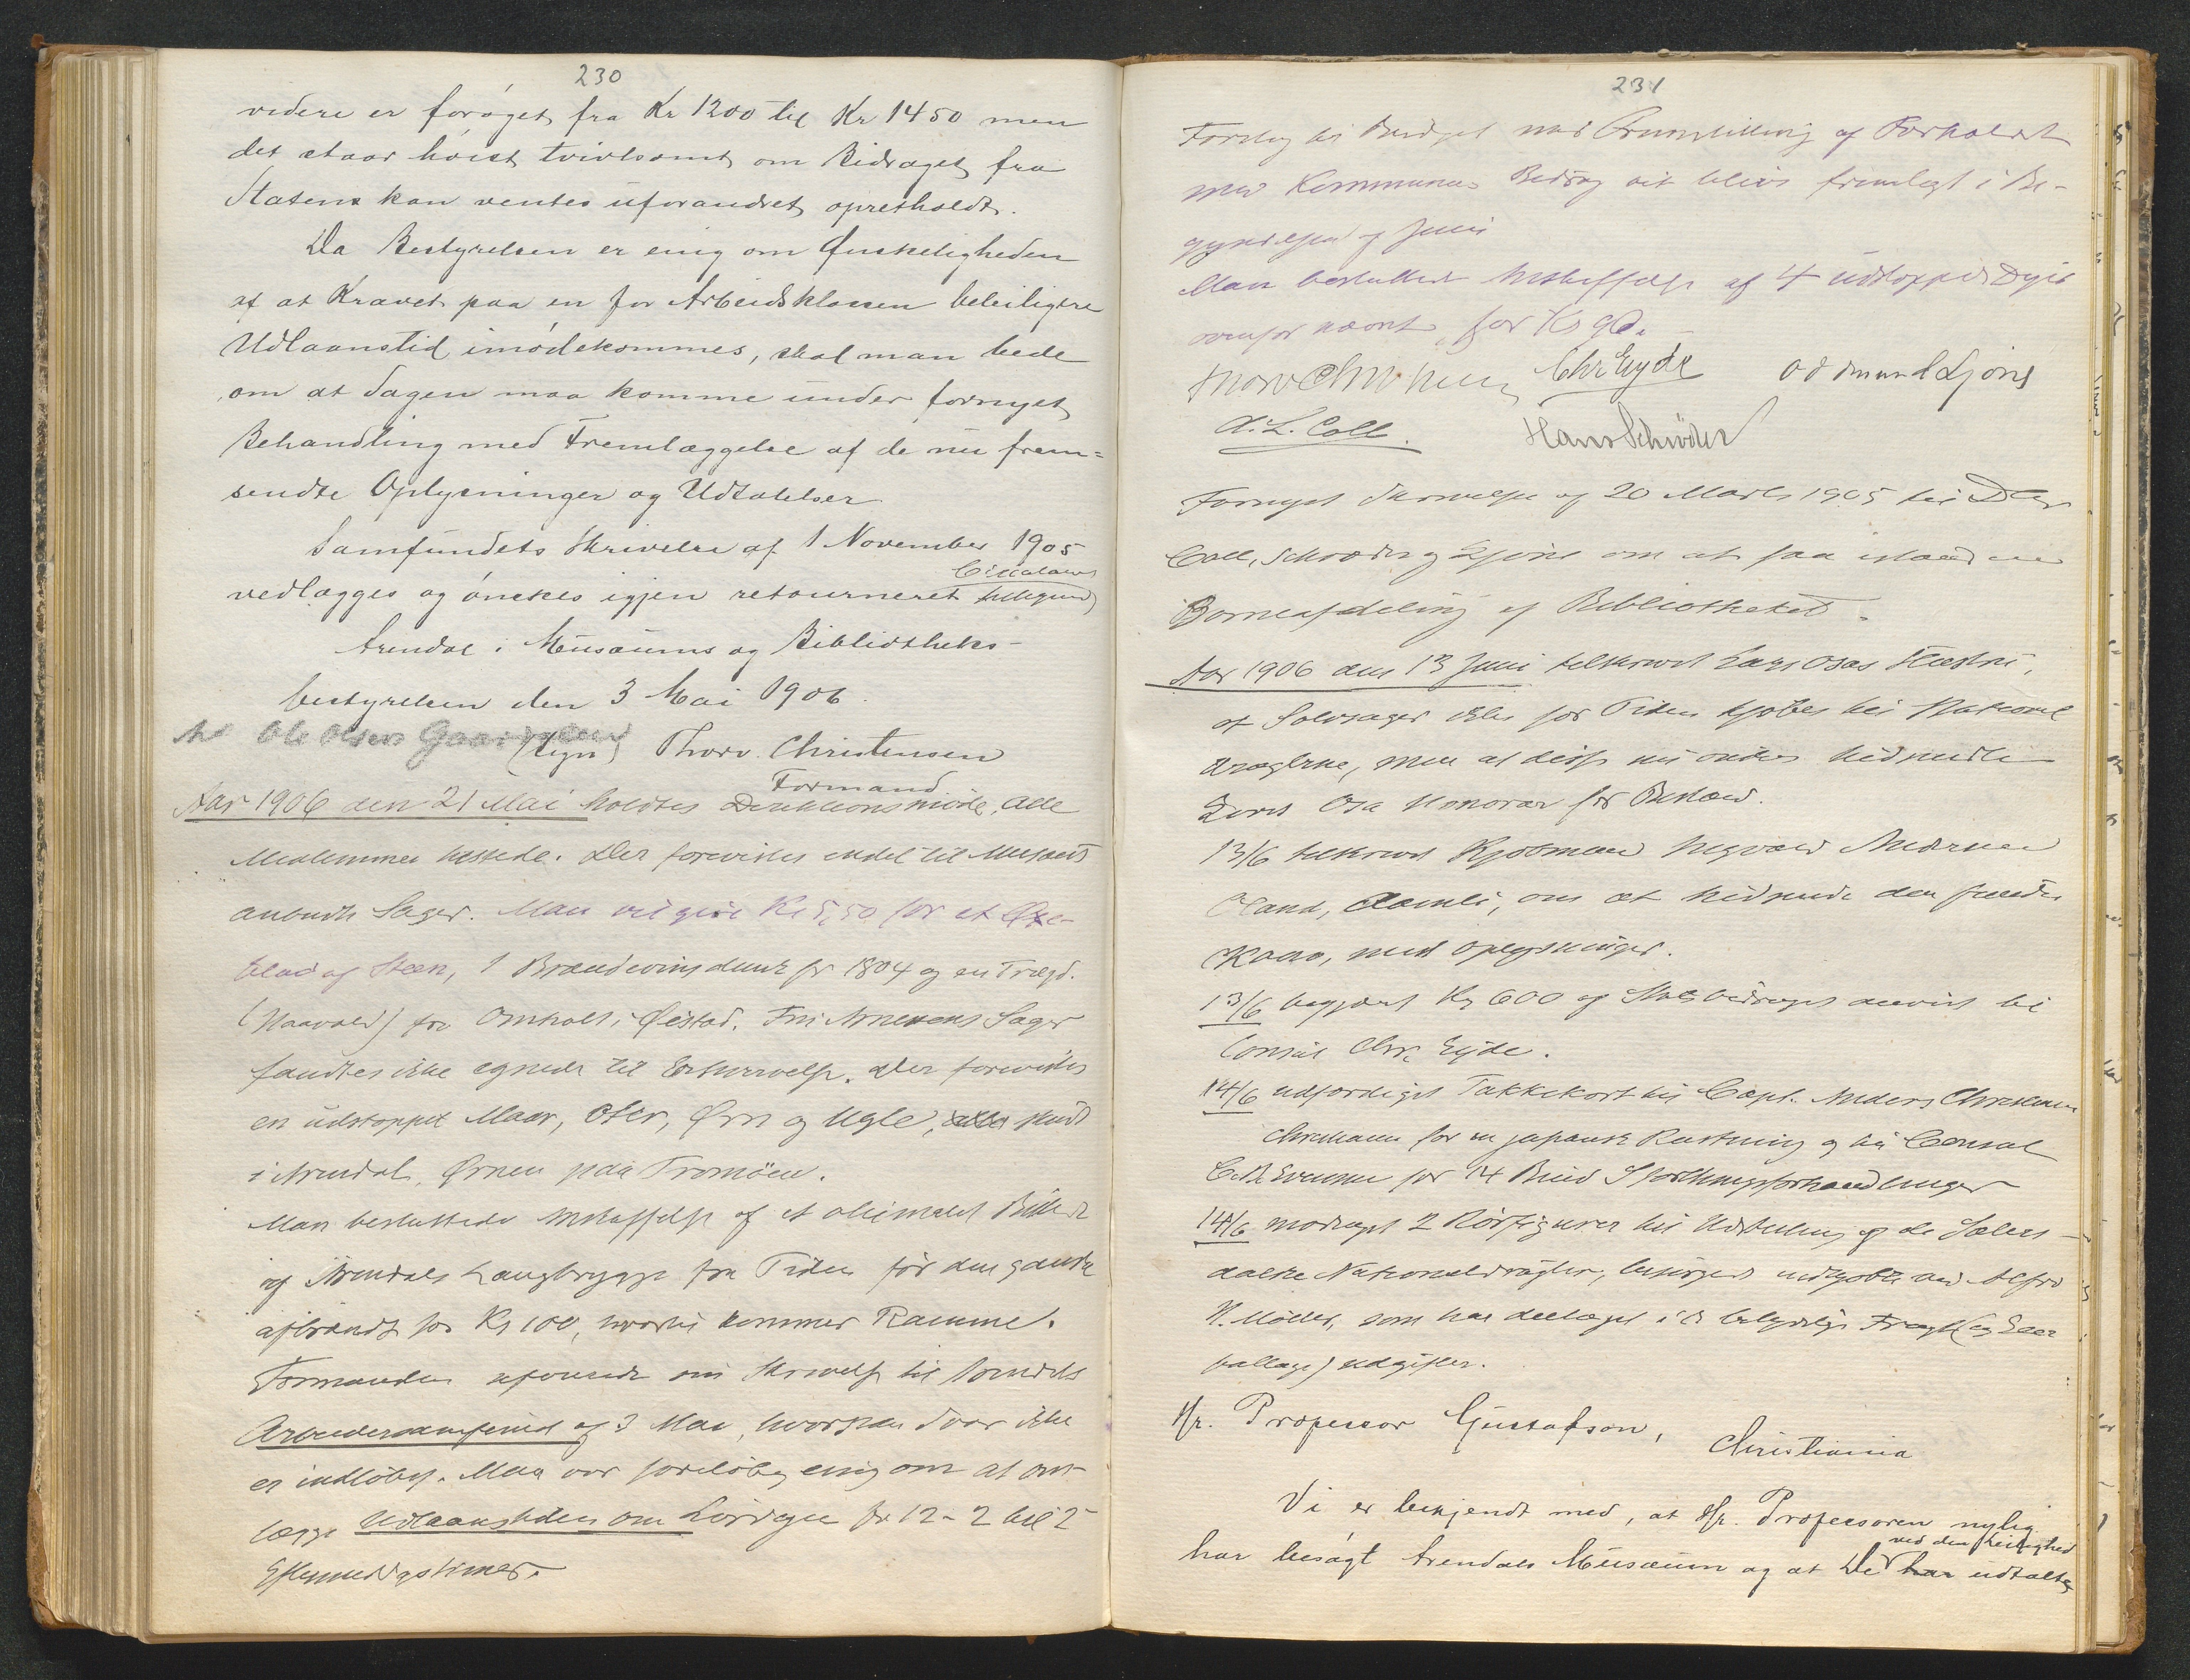 230
videre er forøget fra Kr 1200 til Kr 1450 men
det staar høist tvivlsomt om Bidraget fra
Staten kan ventes uforandret opretholdt.
Da Bestyrelsen er enig om Ønskeligheden
af at Kravet paa en for Arbeidsklassen beleiligere
Udlaanstid imødekommes, skal man bede
om at Sagen maa komme under fornyet
Behandling med Fremlæggelse af de nu frem=
sendte Oplysninger og Udtalelser
Samfundets Skrivelse af 1 November 1905
vedlægges og ønskes igjen retourneret
Arendal i Musæums og Bibliotheks-
bestyrelsen den 3 Mai 1906.
Ole Olsen
(sign) Thorv. Christensen
Formand
Aar 1906 den 21 Mai holdtes Direktionsmøde, alle
Medlemmer tilstede. Der forevistes endel til Musæet
anbudte Sager. Man vil give Kr 5,50 for et Øxe-
blad af Steen, 1 Brændevinsdunk fr 1804 og en Trægd.
(Haavald) fra Omholt i Øiestad. Fru Arnesens Sager
fandtes ikke egnede til Erhvervelse. Der forevistes
en udstoppet Maar, Oter, Ørn og Ugle, alle skudt
i Arendal, Ørnen paa Tromøen.
Man besluttede Anskaffelse af et oliemalet Billede
af Arendals Langbrygge fra Tiden før den ganske
afbrændt for Kr 100, hvortil kommer Ramme.
Formanden refererede sin Skrivelse til Arendals
Arbeidersamfund af 3 Mai, hvorpaa Svar ikke
er indløbet. Man var foreløbig enig om at om-
lægge Udlaanstiden om Lørdagen fr 12-2 til 2
Eftermiddagstimer.
231
Forslag til Budget med Fremstilling af Forholdet
med Kommunens Bidrag vil blive fremlagt i Be-
gyndelsen af Juni
Man besluttede Anskaffelse af 4 udstoppede Dyr
ovenfor nævnt, for Kr 90.
Thorv Christensen Chr Eyde Oddmund Ljone
A. L. Coll. Hans Schrøder
Fornyet Skrivelse af 20 Marts 1905 til DHr
Coll, Schrøder og Ljone om at faa istand en
Børneafdeling af Bibliotheket.
Aar 1906 den 13 Juni tilskrevet Lars Osa,
at Sølvsager ikke for Tiden kjøbes til National
dragterne, men at disse nu ønskes nedsendte
Osa Honorar for Besvær.
13/6 tilskrevet Kjøbmand Anderssen
Aamli, om at nedsende den fundne
med Oplysninger.
13/6 begjæret Kr 600 af Statsbidraget anvist til
Consul Chr. Eyde.
14/6 udfærdiget Takkekort til Capt. Anders Christensen
for en japansk Rustning og til Consul
for 14 Bind Storthingsforhandlinger
14/6 modtaget 2 Rørfigurer til Udstilling af de Sæters-
dalske Nationaldragter, besørget indkjøbte ved Alfr
N. Møller, som har deeltaget i de betydelige Fragt (og Em
ballage) udgifter.
Hr. Professor Gustafson,
Christiania
Vi er bekjendt med, at Hr. Professoren nylig
har besøgt Arendals Musæum og at De har udtalt
ved den Leilighed